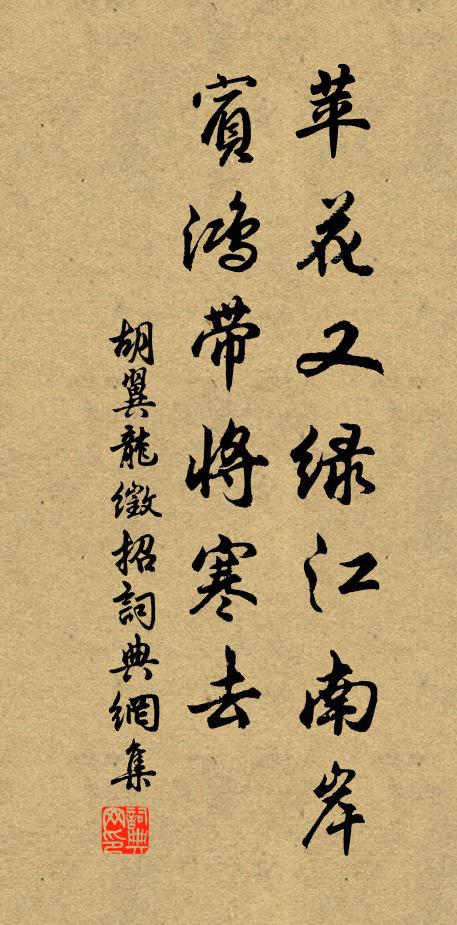 苹花又绿江南岸
賓鴻带将寒去
胡翼龍徵招詞典網集
詞典网印